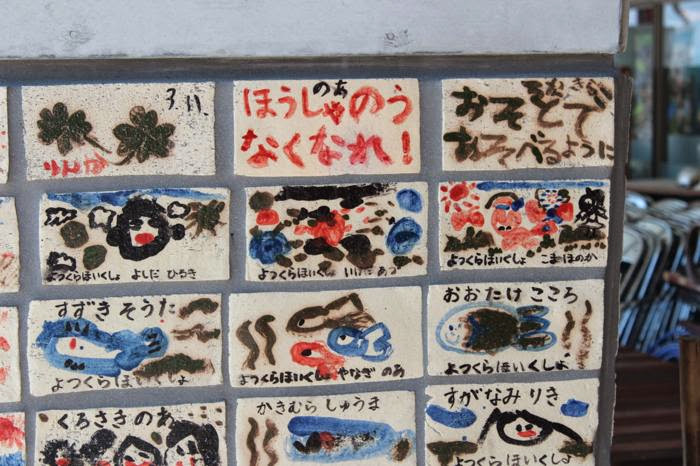 3.11.
りんか
のあ
ほうしゃのう
なくなれ!
おそとで
あそべるように
よつくらほいくしょ よしだ ひろき
よつくらほいくしょ
よつくらほいくしょ こま ほのか
すずき そうた
よつくらほいくしょ
よつくらほいくしょ やなぎ のあ
おおたけ こころ
よつくらほいくしょ
くろさき のあ
かきむら しゅうま
すがなみ りき
よつくら ほいくしょ